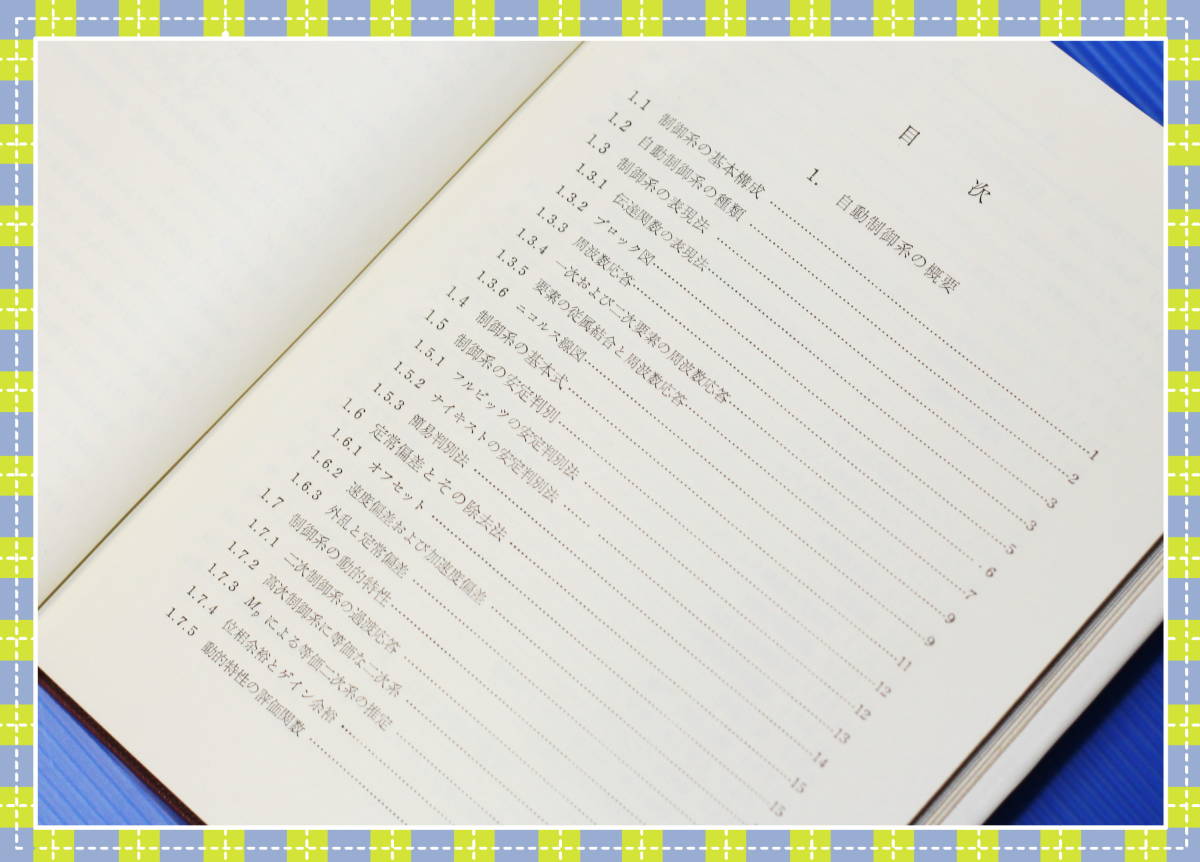 目次
1. 自動制御系の概要
1.1 制御系の基本構成 ………… 1
1.2 自動制御系の種類 ………… 2
1.3 制御系の表現法 ………… 3
1.3.1 伝達関数の表現法 ………… 3
1.3.2 ブロック図 ………… 5
1.3.3 周波数応答 ………… 6
1.3.4 一次および二次要素の周波数応答 ………… 7
1.3.5 要素の従属結合と周波数応答 ………… 9
1.3.6 ニコルス線図 ………… 9
1.4 制御系の基本式 ………… 11
1.5 制御系の安定判別 ………… 12
1.5.1 フルビッツの安定判別法 ………… 12
1.5.2 ナイキストの安定判別法 ………… 13
1.5.3 簡易判別法 ………… 14
1.6 定常偏差とその除去法 ………… 15
1.6.1 オフセット ………… 15
1.6.2 速度偏差および加速度偏差 …………
1.6.3 外乱と定常偏差 …………
1.7 制御系の動的特性 …………
1.7.1 二次制御系の過渡応答 …………
1.7.2 高次制御系に等価な二次系 …………
1.7.3 Mpによる等価二次系の推定 …………
1.7.4 位相余裕とゲイン余裕 …………
1.7.5 動的特性の評価関数 …………